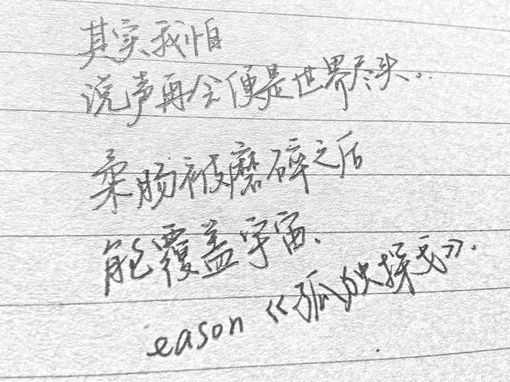 其实我怕
说声再会便是世界尽头..
柔肠被磨碎之后
能覆盖宇宙.
eason《孤独探戈》.